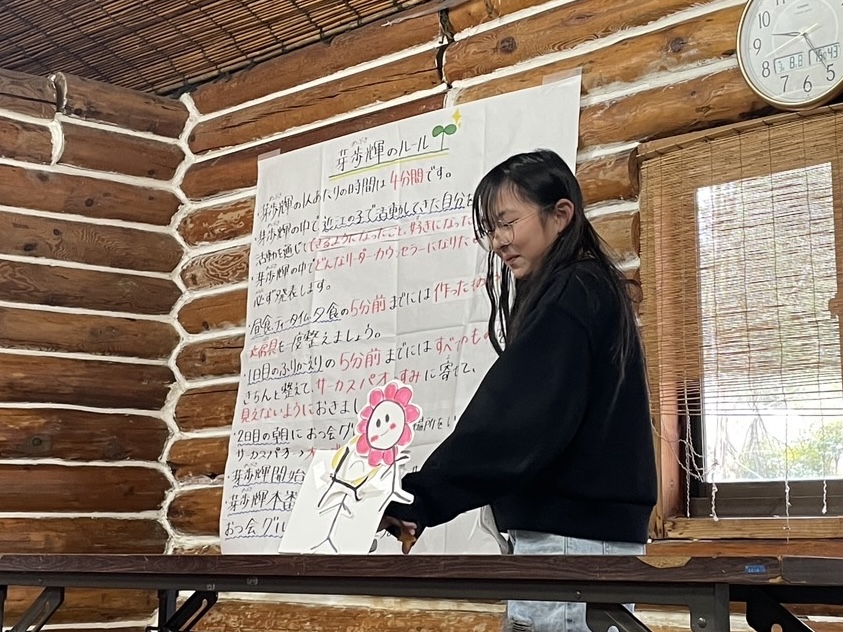 芽歩輝のルール
・芽歩輝の1人あたりの時間は4分間です。
・芽歩輝の中で近江の子で活動してきた自分を
活動を通じてできるようになったこと、好きになった
・芽歩輝の中でどんなリーダーカウンセラーになりた
必ず発表します。
・昼食、ティータイム、夕食の5分前までには作ったもの
文房具を一度整えましょう。
・1日目のふりかえりの5分前までにはすべてのもの
きちんと整えて、サーカスパオ すみに寄せて、
見えないようにおきまし
・2日目の朝におっ会グ 場所をい
サーカスパオ
・芽歩輝開始
・芽歩輝本番
おっ会グル
10
11
9
8
7
6
5
4
8.8